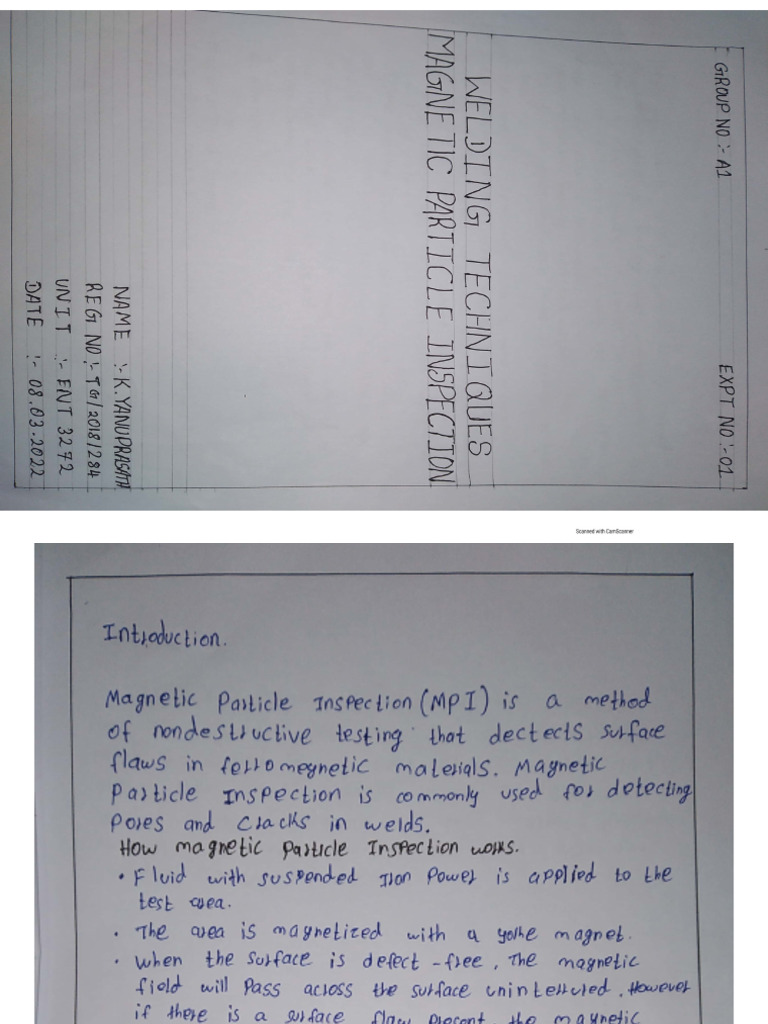 GROUP NO :- A1
EXPT NO :- 01
WELDING TECHNIQUES
MAGNETIC PARTICLE INSPECTION
NAME :- K.YANUPRASATH
REG NO :- TG/2018/284
UNIT :- ENT 3272
DATE :- 08.03.2022
Scanned with CamScanner
Introduction.
Magnetic Particle Inspection (MPI) is a method
of nondestructive testing that dectects surface
flaws in ferromegnetic materials. Magnetic
Particle Inspection is commonly used for detecting
Pores and cracks in welds.
How magnetic Particle Inspection works.
• Fluid with suspended Iron Power is applied to the
test area.
• The area is magnetized with a yothe magnet.
• When the surface is defect-free, The magnetic
field will Pass across the surface uninterrured. However
if there is a surface flaw present, the magnetic